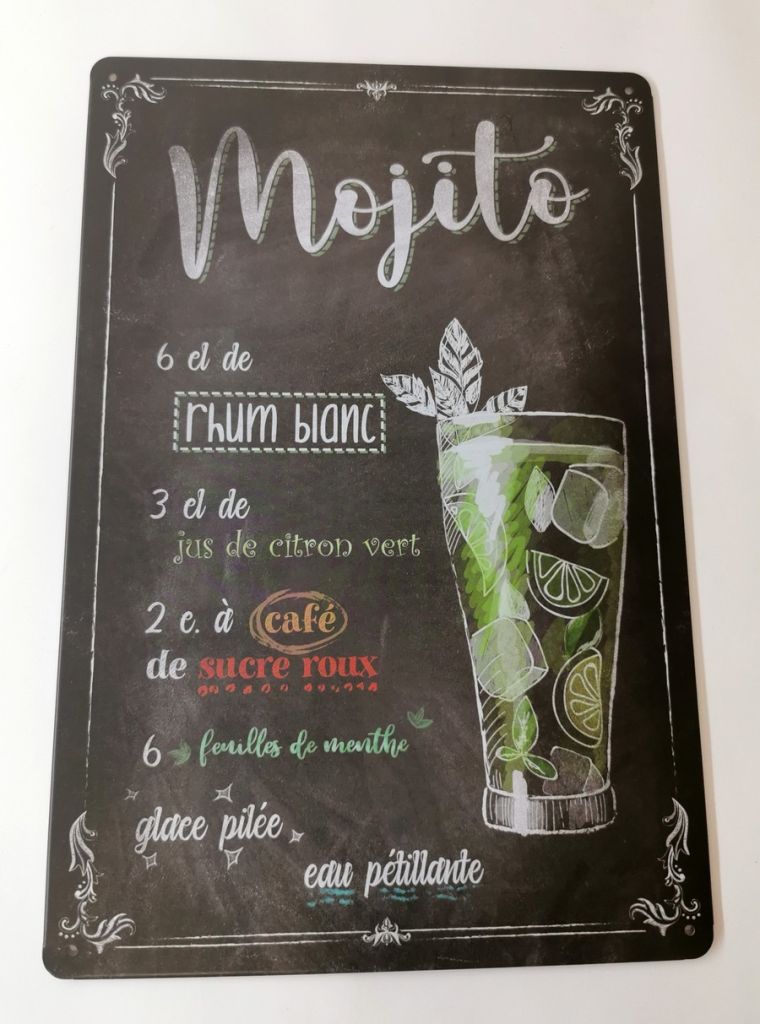 Mojito
6 el de
rhum blanc
3 el de
jus de citron vert
2 c. à café
de sucre roux
6 feuilles de menthe
glace pilée
eau pétillante